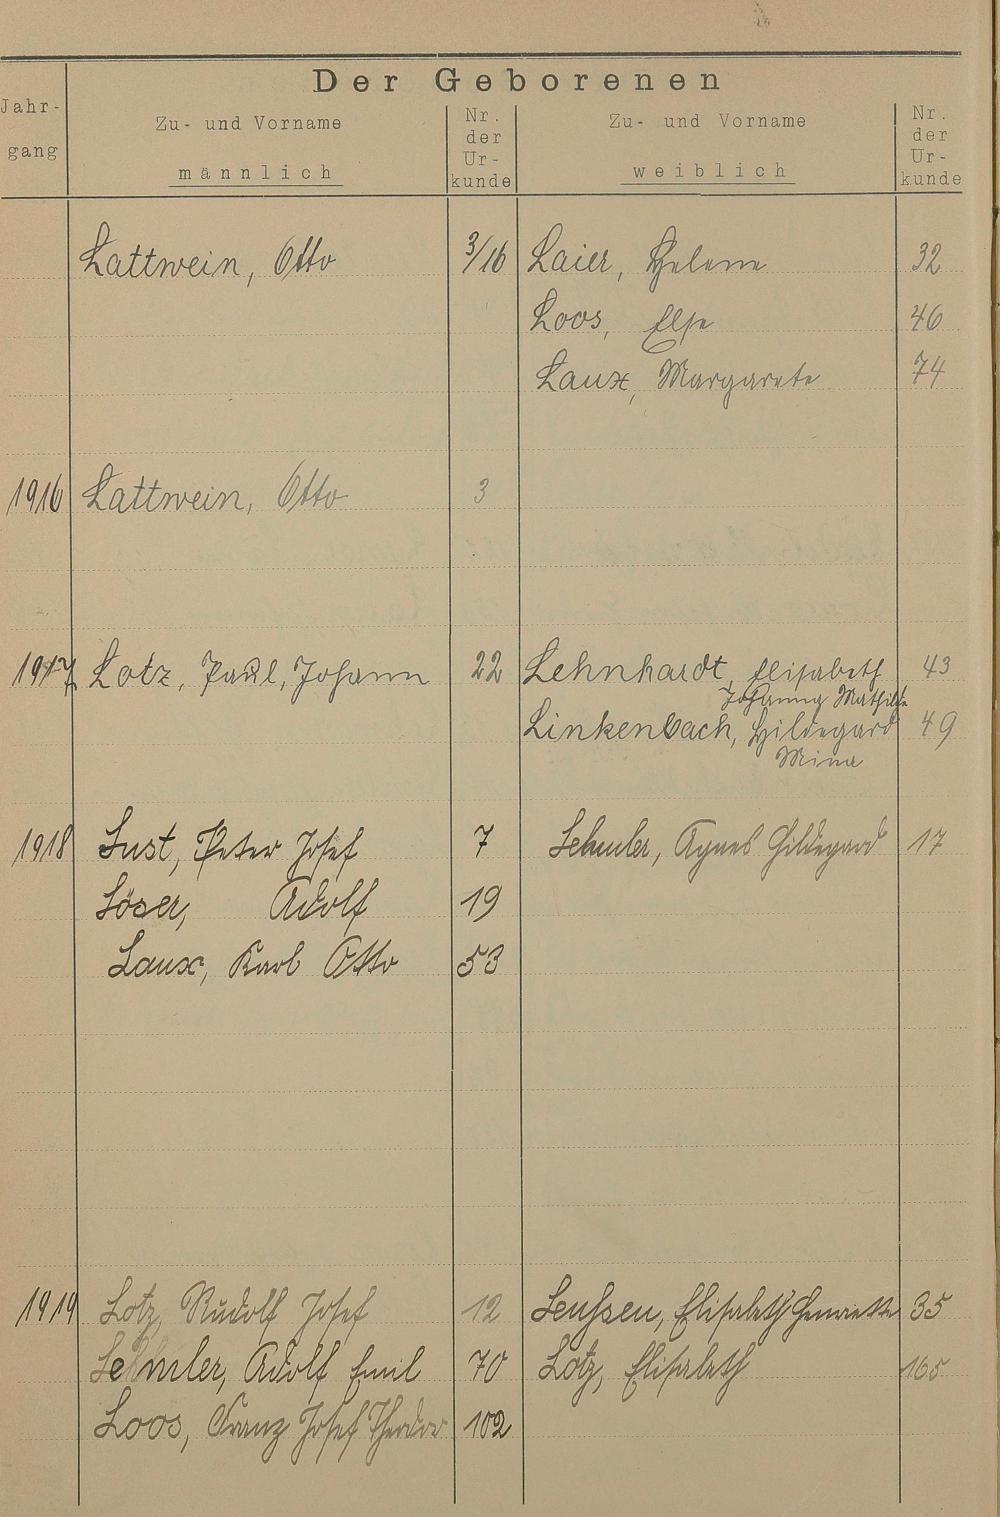 Der Geborenen
Jahr-
gang
Zu- und Vorname
männlich
Nr.
der
Ur-
kunde
Zu- und Vorname
weiblich
Nr.
der
Ur-
kunde
Lattwein, Otto 3/16 Laier, Helene 32
Loos, Else 46
Laux, Margarete 74
1916 Lattwein, Otto 3
1917 Lotz, Paul, Johann 22 Lehnhardt, Elisabeth 43
Johanna Mathilde
Linkenbach, Hildegard 49
Mina
1918 Lust, Peter Josef 7 Lehmler, Agnes Hildegard 17
Löser, Adolf 19
Laux, Karl Otto 53
1919 Lotz, Rudolf Josef 12 Leussen, Elisabeth Henriette 35
Lehmler, Adolf Emil 70 Lotz, Elisabeth 165
Loos, Franz Josef Theodor 102